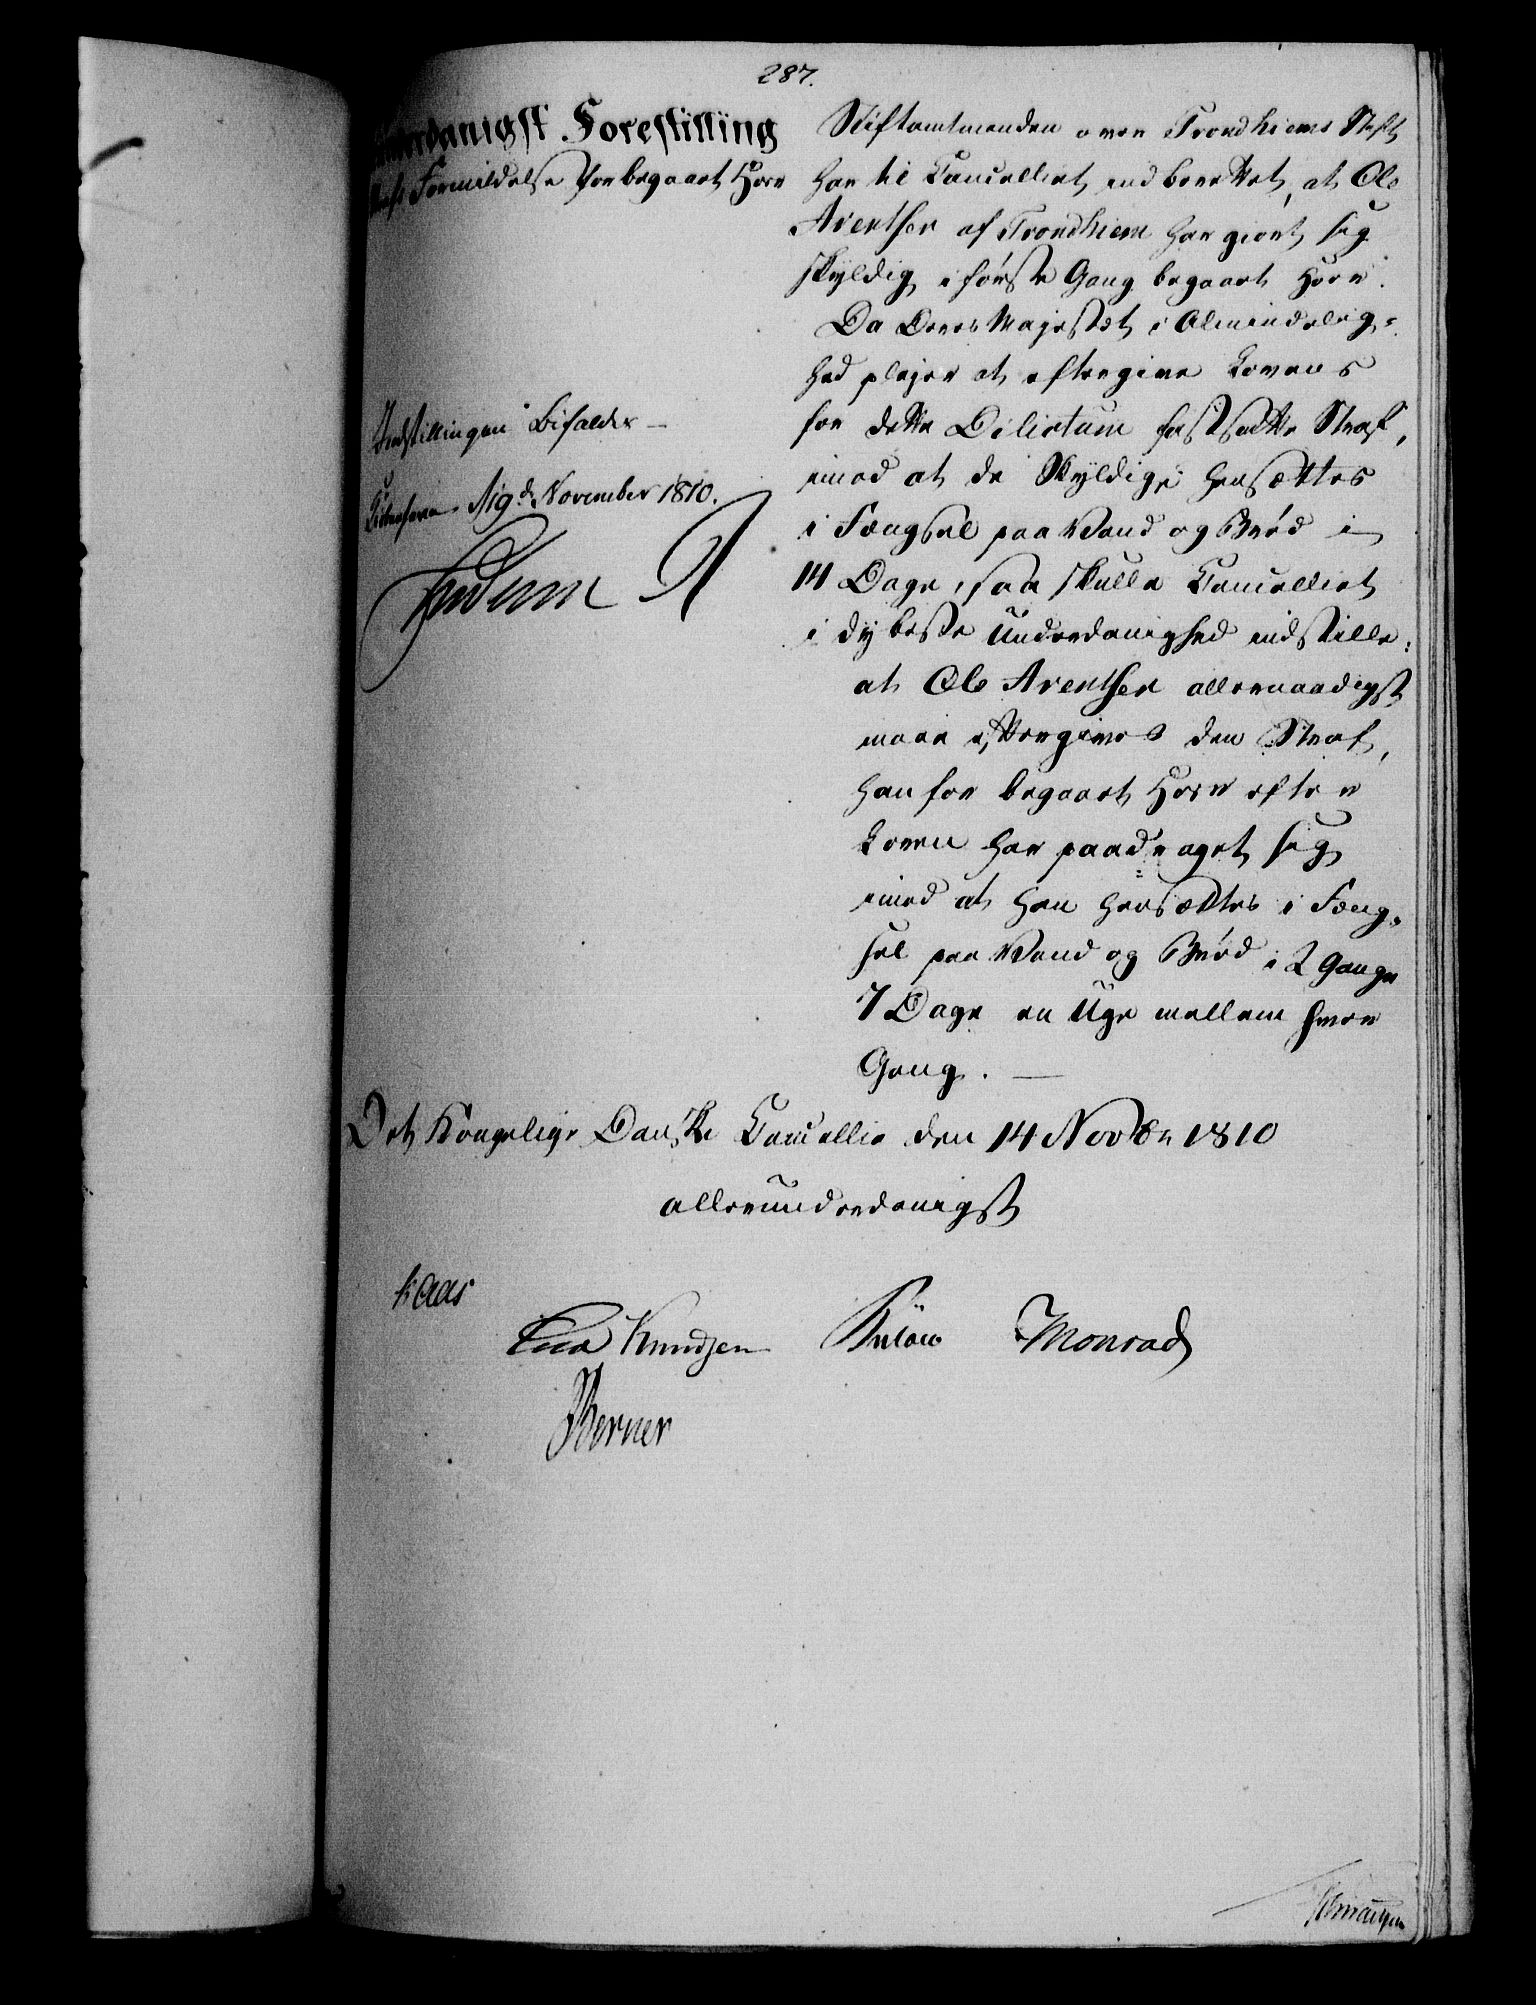 287.
Forestilling
Formildelse for begaaet Hoer
Indstillingen bifaldes —
d 19d. November 1810.
Frederik R
Stiftamtmanden over Trondhiems Stift
har til Cancelliet indberettet, at Ole
Arentsen af Trondhiem har giort sig
skyldig i første Gang begaaet Hoer.
Da Deres Majestæt i Almindelig-
hed plejer at eftergive Lovens
for dette Delictum fastsatte Straf,
imod at de Skyldige hensættes
i Fængsel paa Vand og Brød i
14 Dage, saa skulle Cancelliet
i dybeste Underdanighed indstille:
at Ole Arentsen allernaadigst
maae eftergives den Straf,
han for begaaet Hoer efter
Loven har paadraget sig
imod at han hensættes i Fæng-
sel paa Vand og Brød i 2 Gange
7 Dage en Uge mellem hver
Gang. —
Det Kongelige Danske Cancellie den 14 Novbr 1810
allerunderdanigst
Kaas
Knudsen Bülow Monrad
Berner